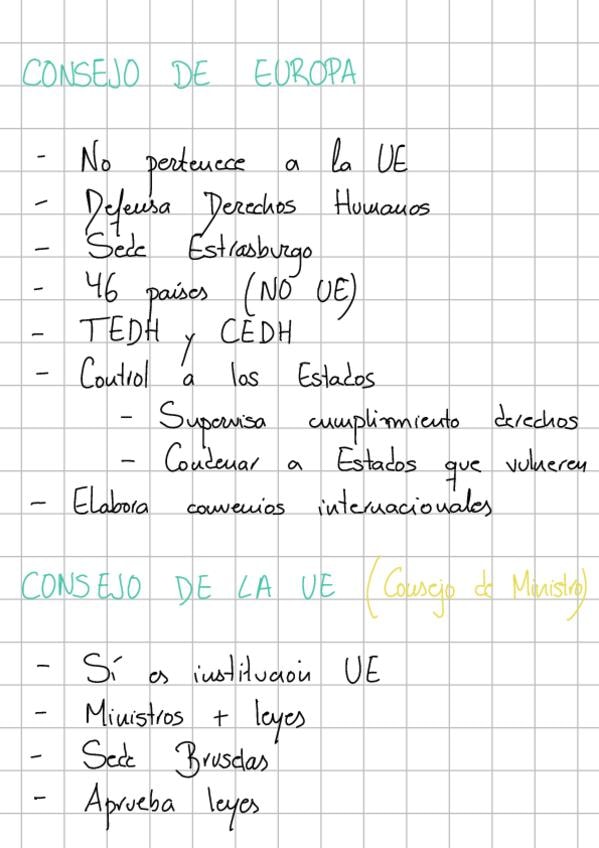 CONSEJO DE EUROPA
- No pertenece a la UE
- Defensa Derechos Humanos
- Sede Estrasburgo
- 46 países (NO UE)
- TEDH y CEDH
- Control a los Estados
- Supervisa cumplimiento derechos
- Condenar a Estados que vulneren
- Elabora convenios internacionales
CONSEJO DE LA UE (Consejo de Ministro)
- Sí es institución UE
- Ministros + leyes
- Sede Bruselas
- Aprueba leyes